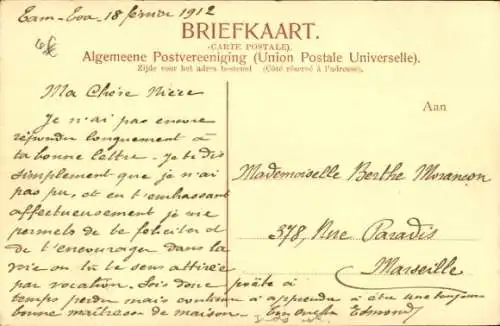 18 février 1912
BRIEFKAART.
(CARTE POSTALE).
Algemeene Postvereeniging (Union Postale Universelle).
Zijde voor het adres bestemd (Côté réservé à l'adresse).
Aan
Ma Chère Nièce
Je n'ai pas encore
répondu longuement à
ta bonne lettre. Je te dis
simplement que je n'ai
pas pu, et en t'embrassant
affectueusement je me
permets de te féliciter et
de t'encourager dans la
voie où tu te sens attirée
par vocation. Sois donc prête à
temps perdu mais continue à apprendre à être une toujours
bonne maîtresse de maison. ton oncle Edmond
Mademoiselle Berthe Morançon
378, Rue Paradis
Marseille